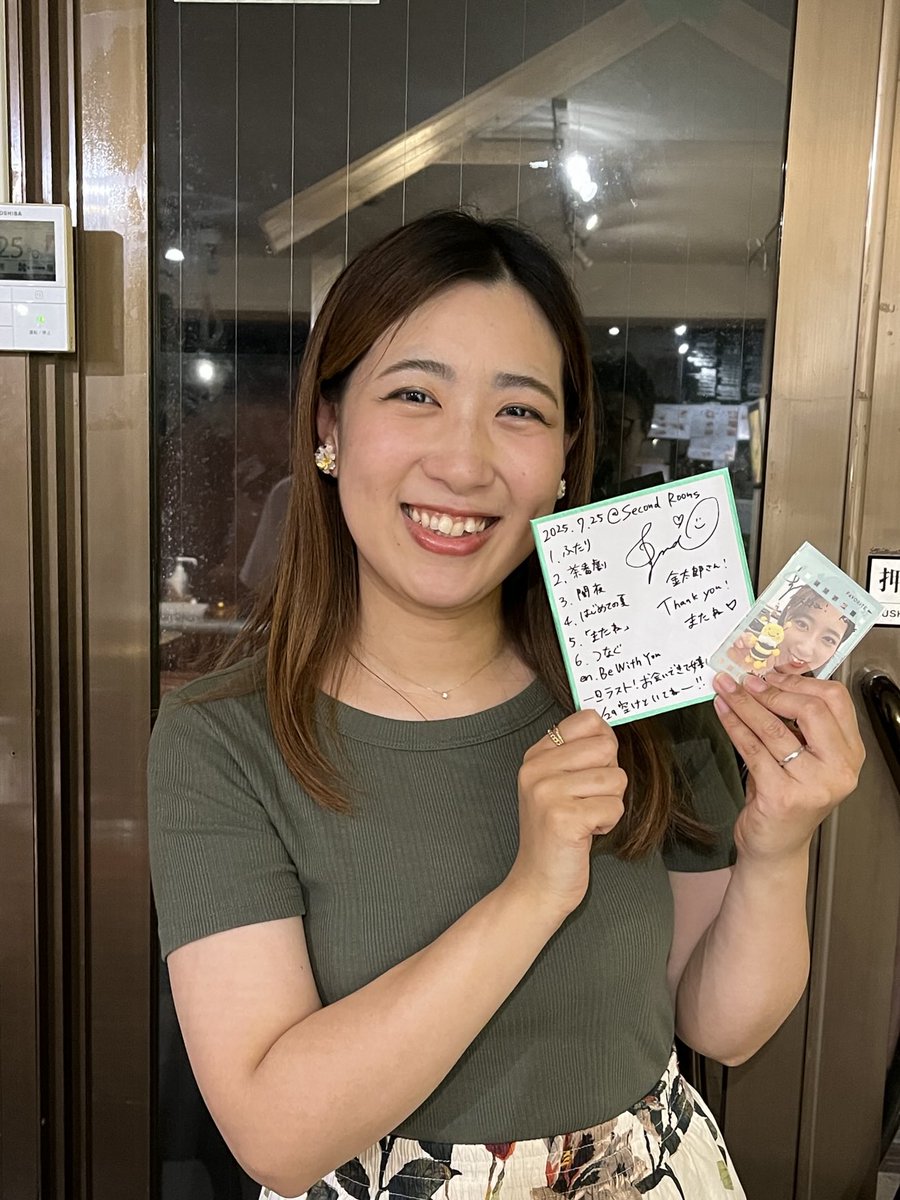 TOSHIBA
25
運転/停止
2025.7.25 @Second Rooms
1. ふたり
2. 茶番劇
3. 闇夜
4. はじめての夏
5. 「またね」
6. つなぐ
en. Be With You
金太郎さん!
Thank you!
またね♡
一日ラスト!お会いできて嬉し
空けといてねー!!
FAVOURITE
押